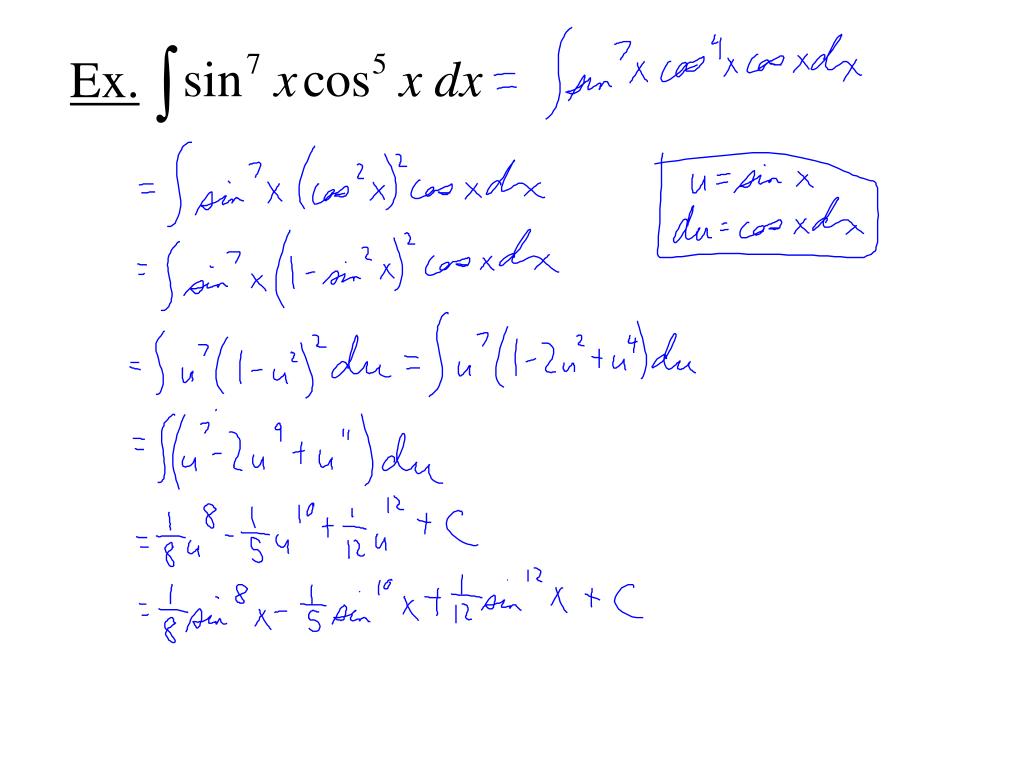 Ex. ∫ sin⁷ x cos⁵ x dx = ∫ sin⁷ x cos⁴ x cos x dx
= ∫ sin⁷ x (cos² x)² cos x dx
u = sin x
du = cos x dx
= ∫ sin⁷ x (1 - sin² x)² cos x dx
= ∫ u⁷ (1 - u²)² du = ∫ u⁷ (1 - 2u² + u⁴) du
= ∫ (u⁷ - 2u⁹ + u¹¹) du
= 1/8 u⁸ - 1/5 u¹⁰ + 1/12 u¹² + C
= 1/8 sin⁸ x - 1/5 sin¹⁰ x + 1/12 sin¹² x + C